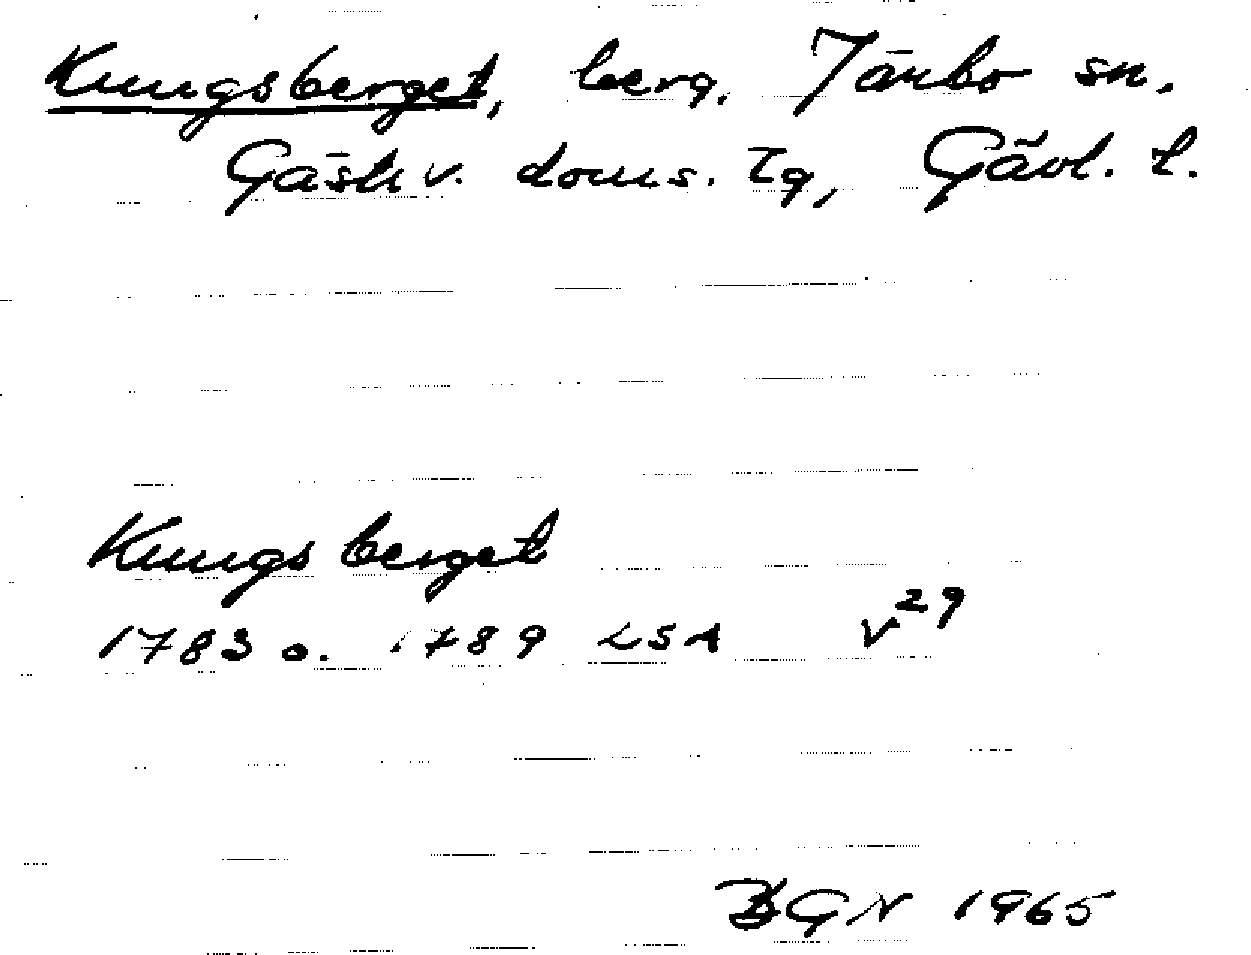 Kungsberget, berg. Järbo sn.
Gästr v. doms. tg, Gävl. l.
Kungsberget
1783 o. 1789 LSA V29
BGN 1965